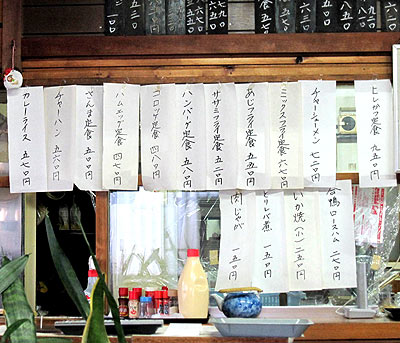 ヒレかつ定食 九五〇円
チャーシューメン 七二〇円
ミックスフライ定食 六七〇円
あじフライ定食 五五〇円
ササミフライ定食 五二〇円
ハンバーグ定食 五八〇円
コロッケ定食 四八〇円
ハムエッグ定食 四七〇円
さんま定食 五〇〇円
チャーハン 五六〇円
カレーライス 五七〇円
合鴨ロースハム 二七〇円
いか焼(小) 二五〇円
とりレバ煮 一五〇円
肉じゃが 一五〇円